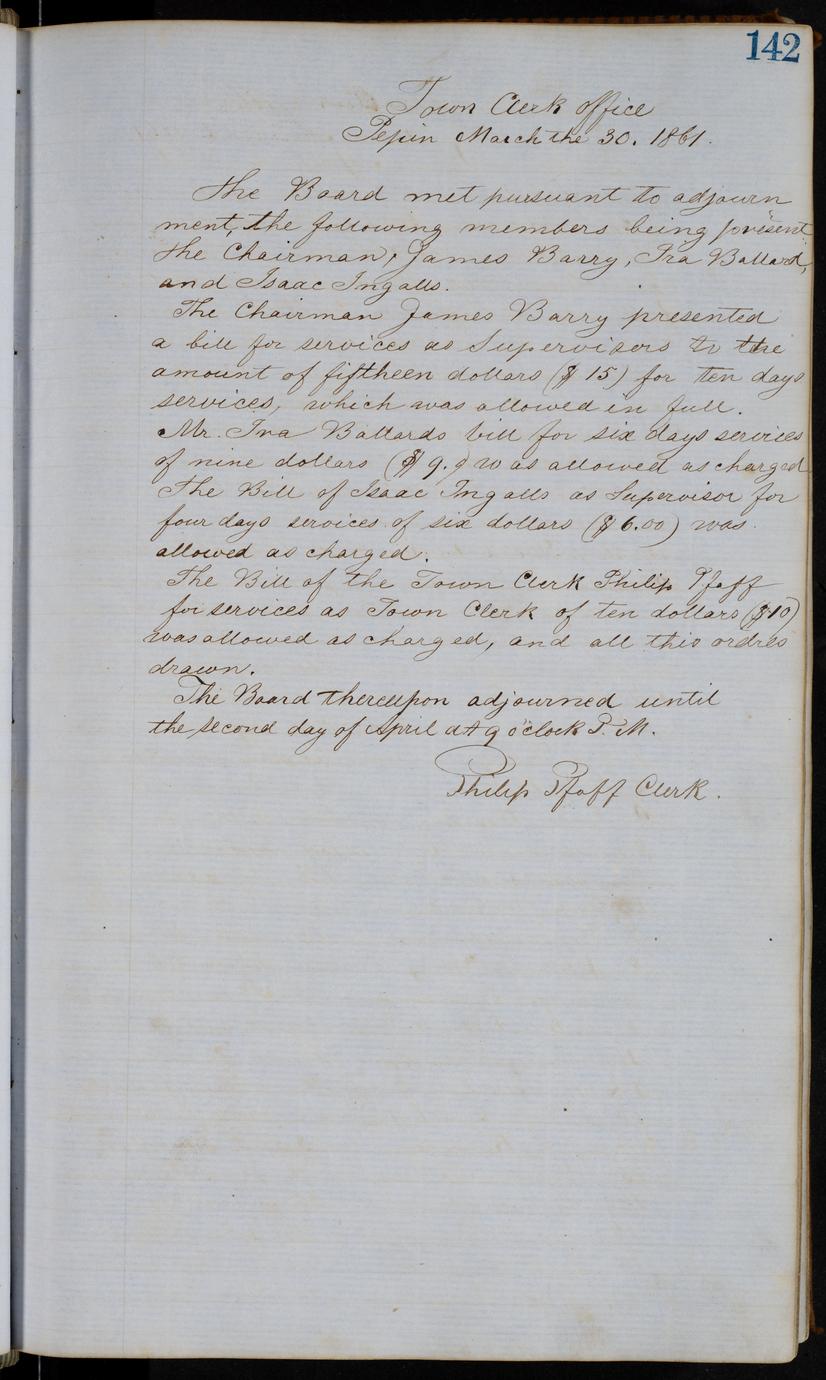 142
Town Clerk office
Pepin March the 30. 1861.
The Board met pursuant to adjourn
ment, the following members being present
the Chairman, James Barry, Ira Ballard,
and Isaac Ingalls.
The Chairman James Barry presented
a bill for services as Supervisors to the
amount of fiftheen dollars ($ 15) for ten days
services, which was allowed in full.
Mr. Ira Ballards bill for six days services
of nine dollars ($ 9.) was allowed as charged
The Bill of Isaac Ingalls as Supervisor for
four days services of six dollars ($ 6.00) was
allowed as charged.
The Bill of the Town Clerk Philip Pfaff
for services as Town Clerk of ten dollars ($10)
was allowed as charged, and all this ordres
drawn.
The Board thereupon adjourned until
the second day of April at 9 o'clock P. M.
Philip Pfaff Clerk.